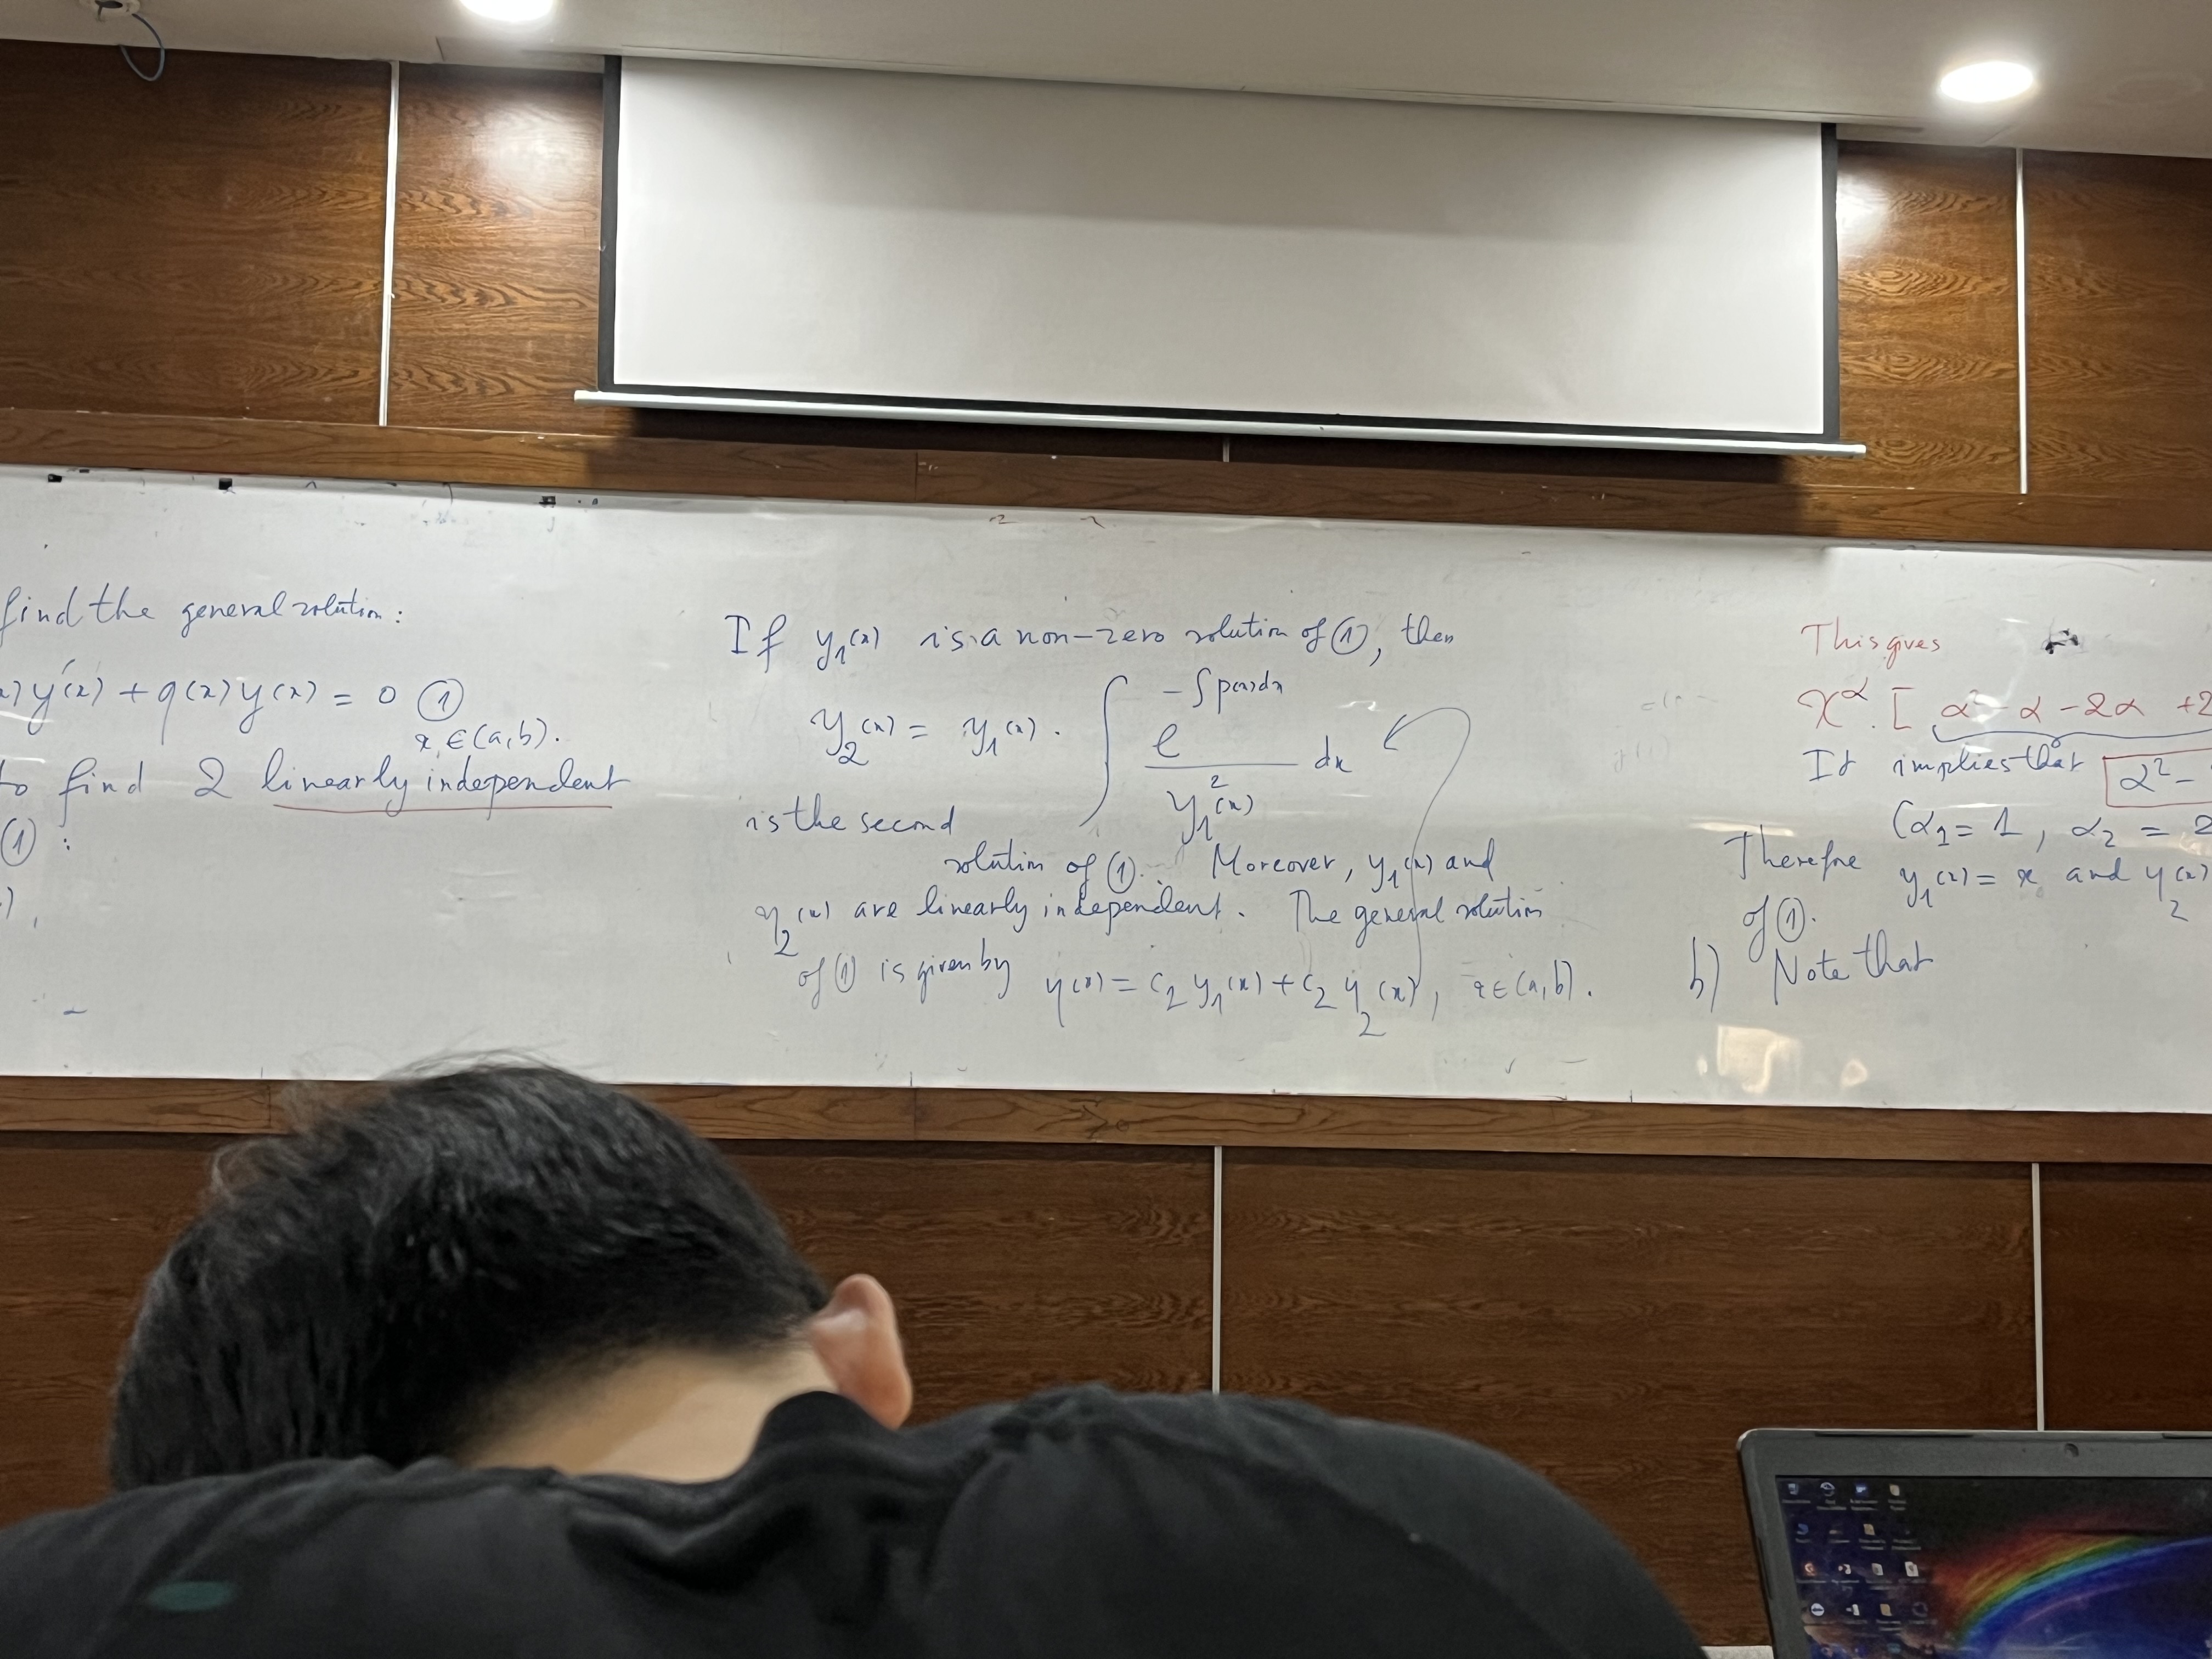 find the general solution:
y'(x) + q(x) y(x) = 0 ①
x ∈ (a,b).
to find 2 linearly independent
① :
If y₁(x) is a non-zero solution of ①, then
y₂(x) = y₁(x) · ∫ e^(-∫p(x)dx) / y₁²(x) dx
is the second
solution of ①. Moreover, y₁(x) and
y₂(x) are linearly independent. The general solution
of ① is given by y(x) = c₂ y₁(x) + c₂ y₂(x), x ∈ (a,b).
This gives
x^α · [ α² - α - 2α + 2
It implies that α² -
(α₁ = 1, α₂ = 2
Therefore y₁(x) = x and y₂(x)
of ①.
b) Note that